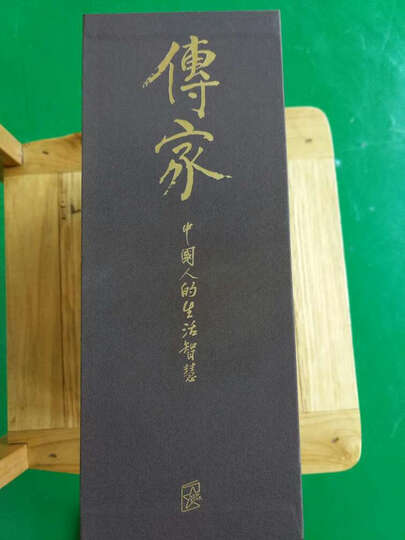 傳家
中國人的生活智慧